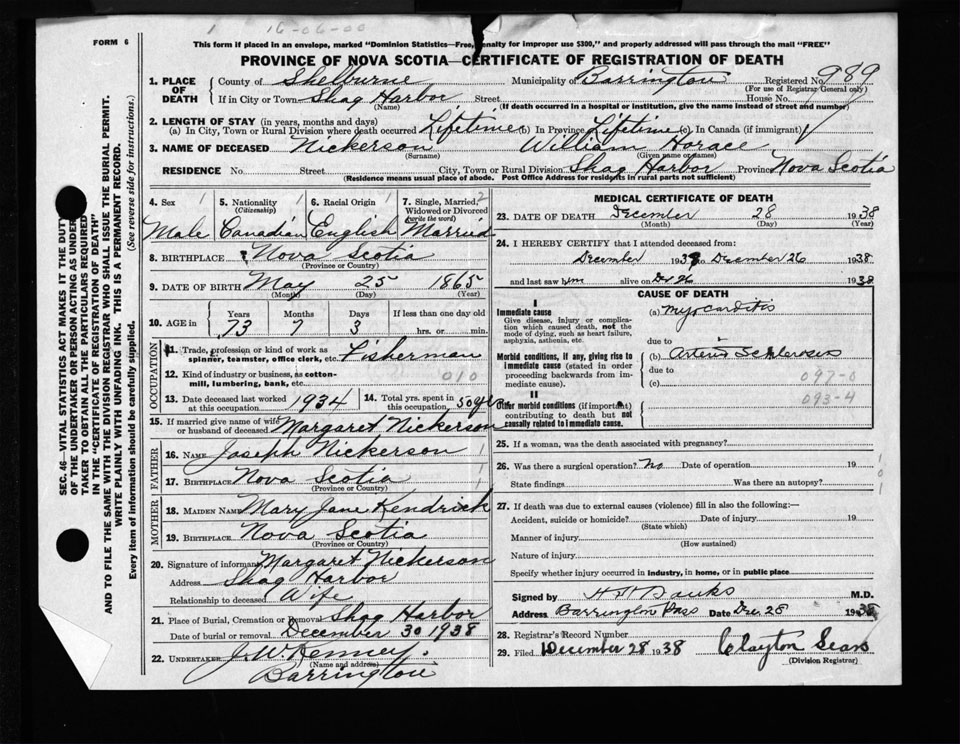 1 16-06-00
FORM 6
This form if placed in an envelope, marked "Dominion Statistics—Free, penalty for improper use $300," and properly addressed will pass through the mail "FREE"
PROVINCE OF NOVA SCOTIA—CERTIFICATE OF REGISTRATION OF DEATH
1. PLACE OF DEATH County of Shelburne Municipality of Barrington Registered No. 989
(For use of Registrar General only)
If in City or Town Shag Harbor Street House No.
(Name) (If death occurred in a hospital or institution, give the name instead of street and number)
2. LENGTH OF STAY (in years, months and days)
(a) In City, Town or Rural Division where death occurred Lifetime (b) In Province Lifetime (c). In Canada (if immigrant)
3. NAME OF DECEASED Nickerson William Horace
(Surname) (Given name or names)
RESIDENCE No. Street City, Town or Rural Division Shag Harbor Province Nova Scotia
(Residence means usual place of abode. Post Office Address for residents in rural parts not sufficient)
SEC. 46—VITAL STATISTICS ACT MAKES IT THE DUTY
OF THE UNDERTAKER OR PERSON ACTING AS UNDER-
TAKER TO OBTAIN ALL THE PARTICULARS REQUIRED
IN THE "CERTIFICATE OF REGISTRATION OF DEATH"
AND TO FILE THE SAME WITH THE DIVISION REGISTRAR WHO SHALL ISSUE THE BURIAL PERMIT.
WRITE PLAINLY WITH UNFADING INK. THIS IS A PERMANENT RECORD.
Every item of information should be carefully supplied. (See reverse side for instructions.)
4. Sex 1 5. Nationality 1 6. Racial Origin 1 7. Single, Married, 2
(Citizenship) Widowed or Divorced
(write the word)
Male Canadian English Married
8. BIRTHPLACE Nova Scotia
(Province or Country)
9. DATE OF BIRTH May 25 1865
(Month) (Day) (Year)
10. AGE in Years Months Days If less than one day old
73 7 3 hrs. or min.
OCCUPATION
11. Trade, profession or kind of work as
spinner, teamster, office clerk, etc. Fisherman
12. Kind of industry or business, as cotton-
mill, lumbering, bank, etc. 010
13. Date deceased last worked
at this occupation 1934 14. Total yrs. spent in
this occupation, 50 yrs
15. If married give name of wife
or husband of deceased Margaret Nickerson
FATHER
16. NAME Joseph Nickerson 1
17. BIRTHPLACE Nova Scotia 1
(Province or Country)
MOTHER
18. MAIDEN NAME Mary Jane Kendrick
19. BIRTHPLACE Nova Scotia
(Province or Country)
20. Signature of informant Margaret Nickerson
Address Shag Harbor
Relationship to deceased Wife
21. Place of Burial, Cremation or Removal Shag Harbor
Date of burial or removal December 30 1938
22. UNDERTAKER J. W. Kenney
(Name and address)
Barrington
MEDICAL CERTIFICATE OF DEATH
23. DATE OF DEATH December 28 1938
(Month) (Day) (Year)
24. I HEREBY CERTIFY that I attended deceased from:
December 1938 to December 26 1938
and last saw him alive on 1938
CAUSE OF DEATH
I
Immediate cause
Give disease, injury or complica-
tion which caused death, not the
mode of dying, such as heart failure,
asphyxia, asthenia, etc.
(a) Myocarditis
due to
Morbid conditions, if any, giving rise to
immediate cause (stated in order
proceeding backwards from im-
mediate cause).
(b) Arterio Schlerosis
due to
(c) 097-0
II
Other morbid conditions (if important)
contributing to death but not cau-
sally related to immediate cause.
093-4
25. If a woman, was the death associated with pregnancy?
26. Was there a surgical operation? No Date of operation 19 1
State findings Was there an autopsy? 0
1
27. If death was due to external causes (violence) fill in also the following:—
Accident, suicide or homicide? Date of injury 19
(State which)
Manner of injury
(How sustained)
Nature of injury
Specify whether injury occurred in industry, in home, or in public place
Signed by M.D.
Address Barrington Pass Date Dec 28 1938
28. Registrar's Record Number
29. Filed December 28 1938 Clayton Sears
(Division Registrar)